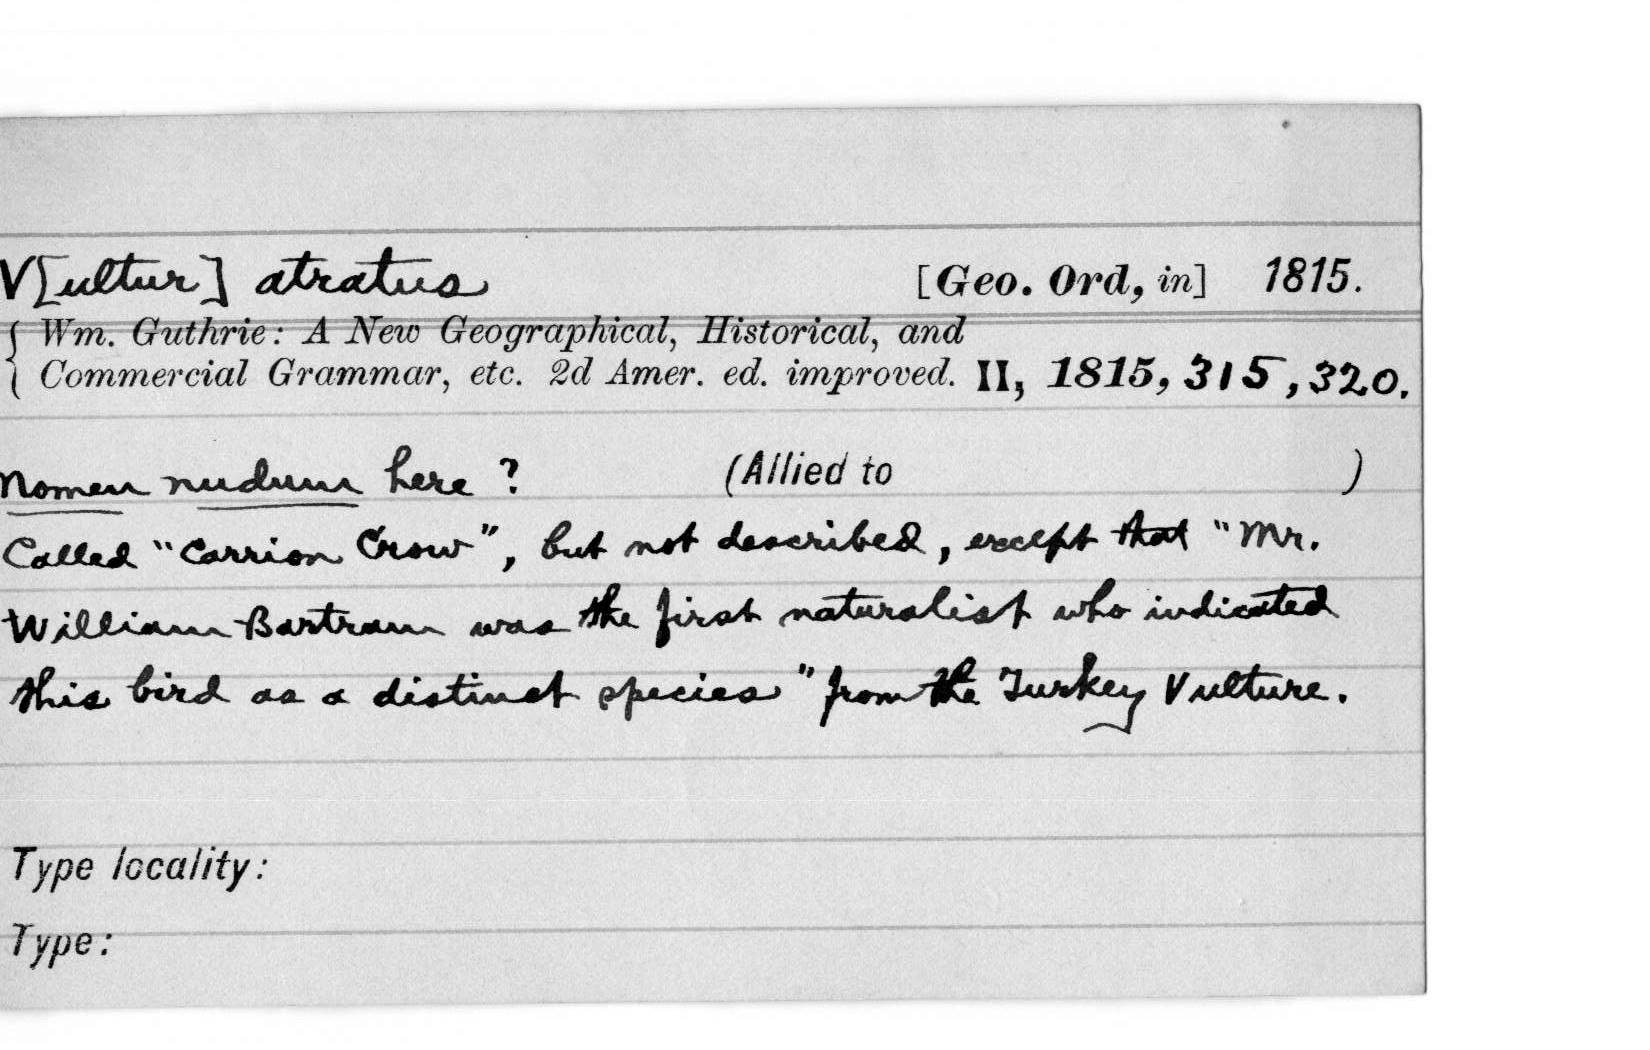 V[ultur] atratus [Geo. Ord, in] 1815.
{ Wm. Guthrie: A New Geographical, Historical, and
Commercial Grammar, etc. 2d Amer. ed. improved. II, 1815, 315, 320.
Nomen nudum here? (Allied to )
Called "Carrion Crow", but not described, except that "Mr.
William Bartram was the first naturalist who indicated
this bird as a distinct species" from the Turkey Vulture.
Type locality:
Type: